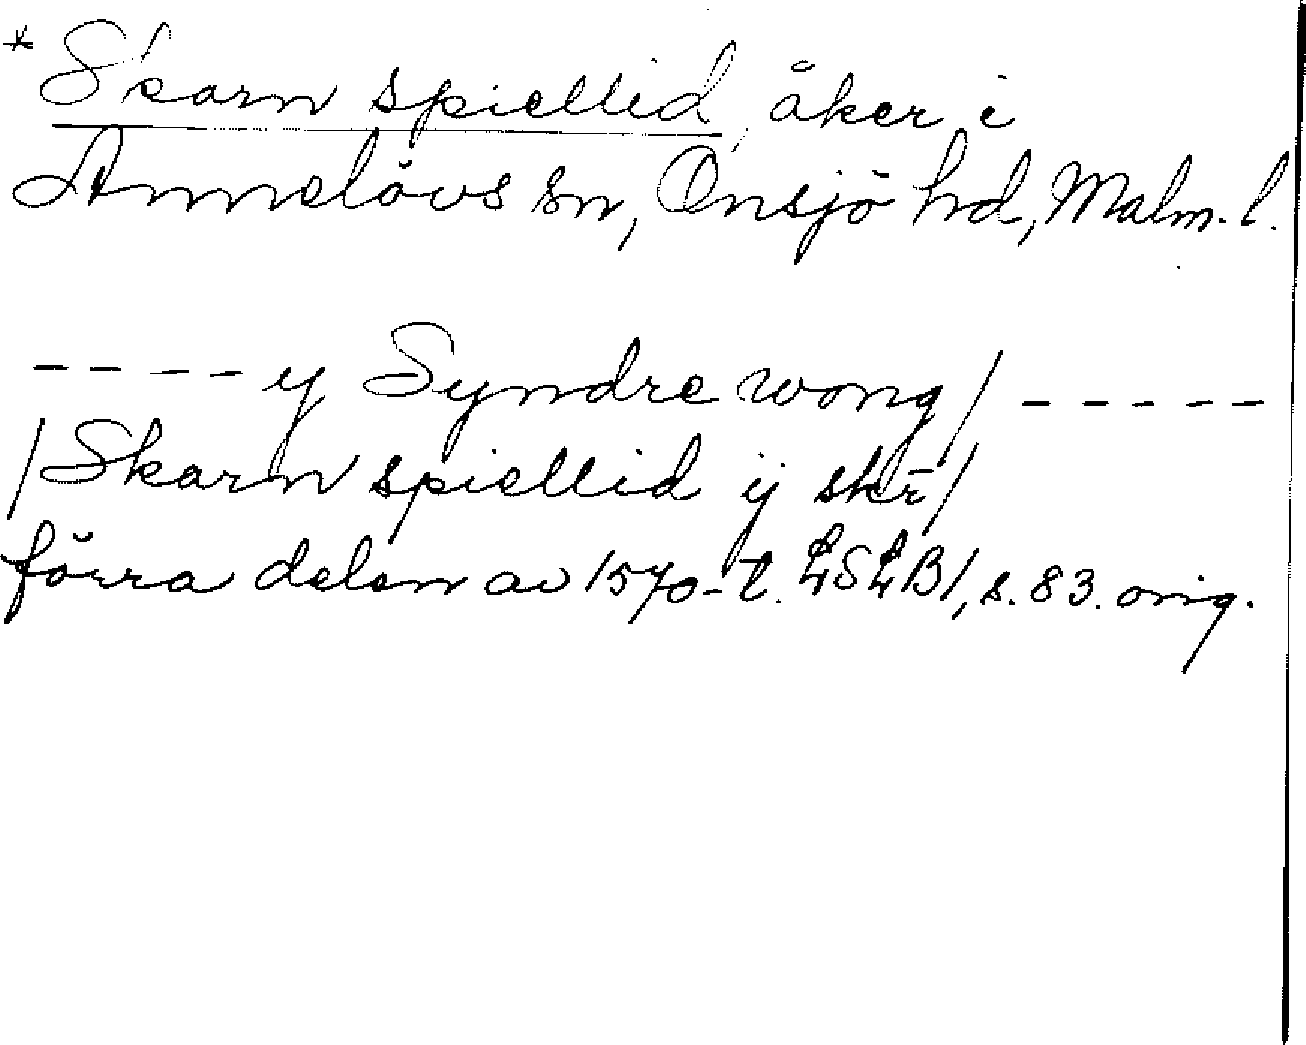 * Skarn spiellid, åker i
Annelövs sn, Onsjö hd, Malm. l.
---- y Syndre wong/ -----
/Skarn spiellid ij skr̄/
förra delen av 1570-t. LSLB1, s. 83. orig.